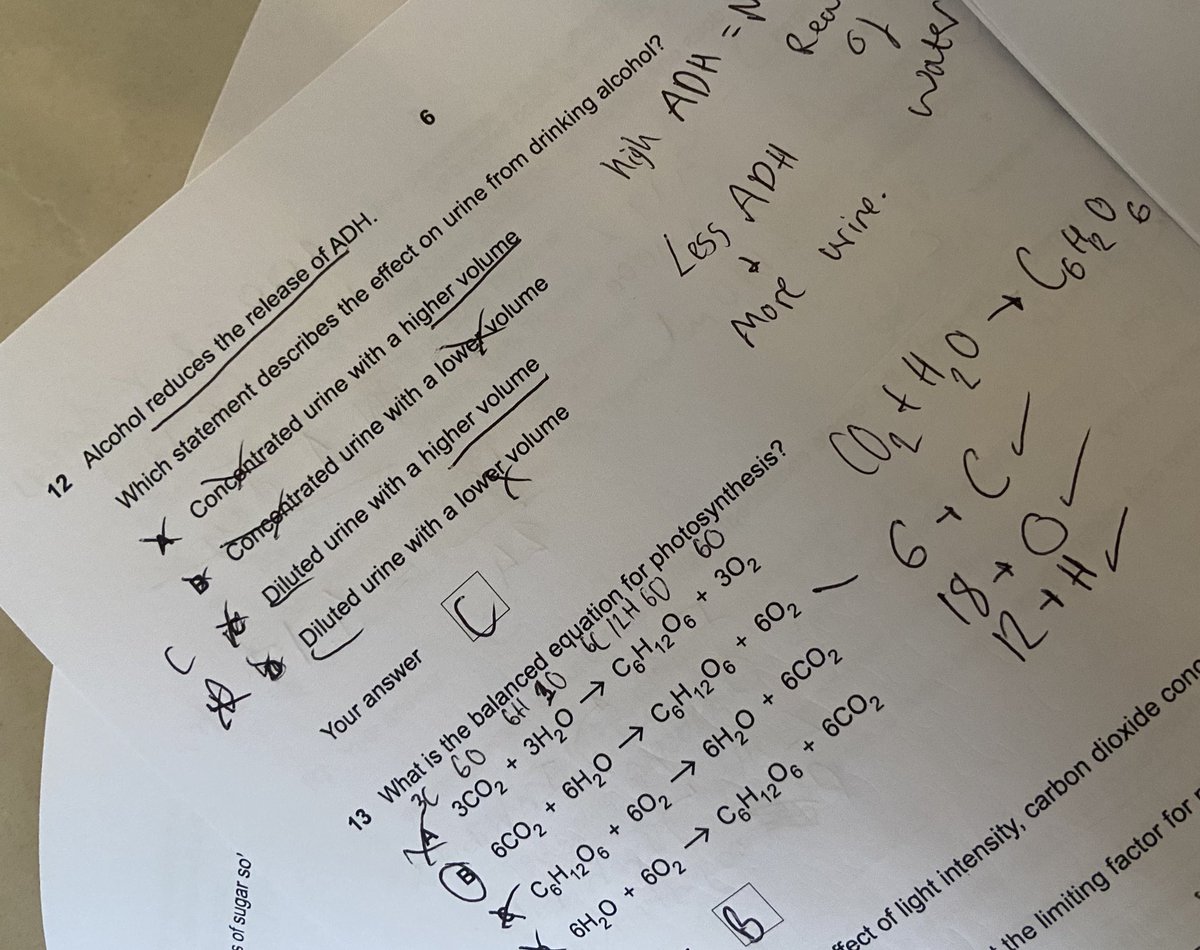 6
12 Alcohol reduces the release of ADH.
Which statement describes the effect on urine from drinking alcohol?
A Concentrated urine with a higher volume
B Concentrated urine with a lower volume
C Diluted urine with a higher volume
D Diluted urine with a lower volume
C
Your answer C
high ADH =
of
water
Less ADH
More urine.
13 What is the balanced equation for photosynthesis?
3C 6O 6H 6C 12H 6O 6O
A 3CO2 + 3H2O → C6H12O6 + 3O2
B 6CO2 + 6H2O → C6H12O6 + 6O2
C C6H12O6 + 6O2 → 6H2O + 6CO2
6H2O + 6O2 → C6H12O6 + 6CO2
B
CO2 + H2O → C6H12O6
6 × C ✓
18 × O ✓
12 × H ✓
of light intensity, carbon dioxide
the limiting factor for
of sugar so'